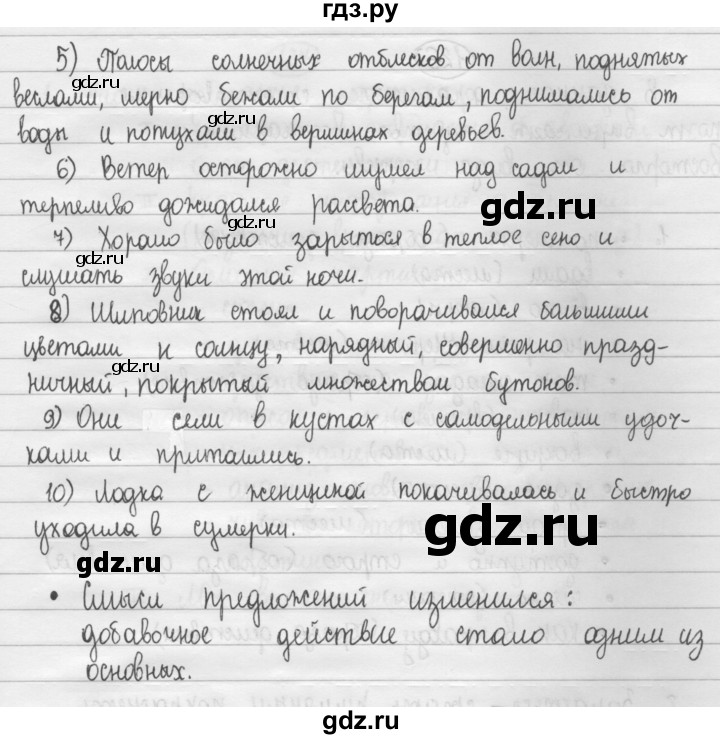 гдз.ру
5) Полосы солнечных отблесков от волн, поднятых
gdz.ru
gdz.ru
веслами, мерно бежали по берегам, поднимались от
gdz.ru
gdz.ru
воды и потухали в вершинах деревьев.
6) Ветер осторожно шумел над садом и
gdz.ru
терпеливо дожидался рассвета.
7) Хорошо было зарыться в теплое сено и
gdz.ru
слушать звуки этой ночи.
gdz.ru
8) Шиповник стоял и поворачивался большими
цветами к солнцу, нарядный, совершенно празд-
gdz.ru
gdz.ru
ничный, покрытый множеством бутонов.
9) Они сели в кустах с самодельными удоч-
gdz.ru
ками и притаились.
10) Лодка с женщиной покачивалась и быстро
gdz.ru
gdz.ru
уходила в сумерки.
gdz.ru
• Смысл предложений изменился:
gdz.ru
добавочное действие стало одним из
gdz.ru
основных.
gdz.ru
gdz.ru